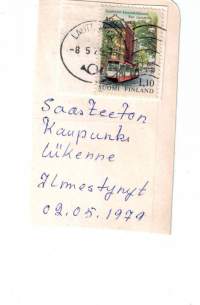 LAHTI
-8 5 79
1,10
SUOMI FINLAND
Saasteeton
Kaupunki
liikenne
Ilmestynyt
02.05.1979